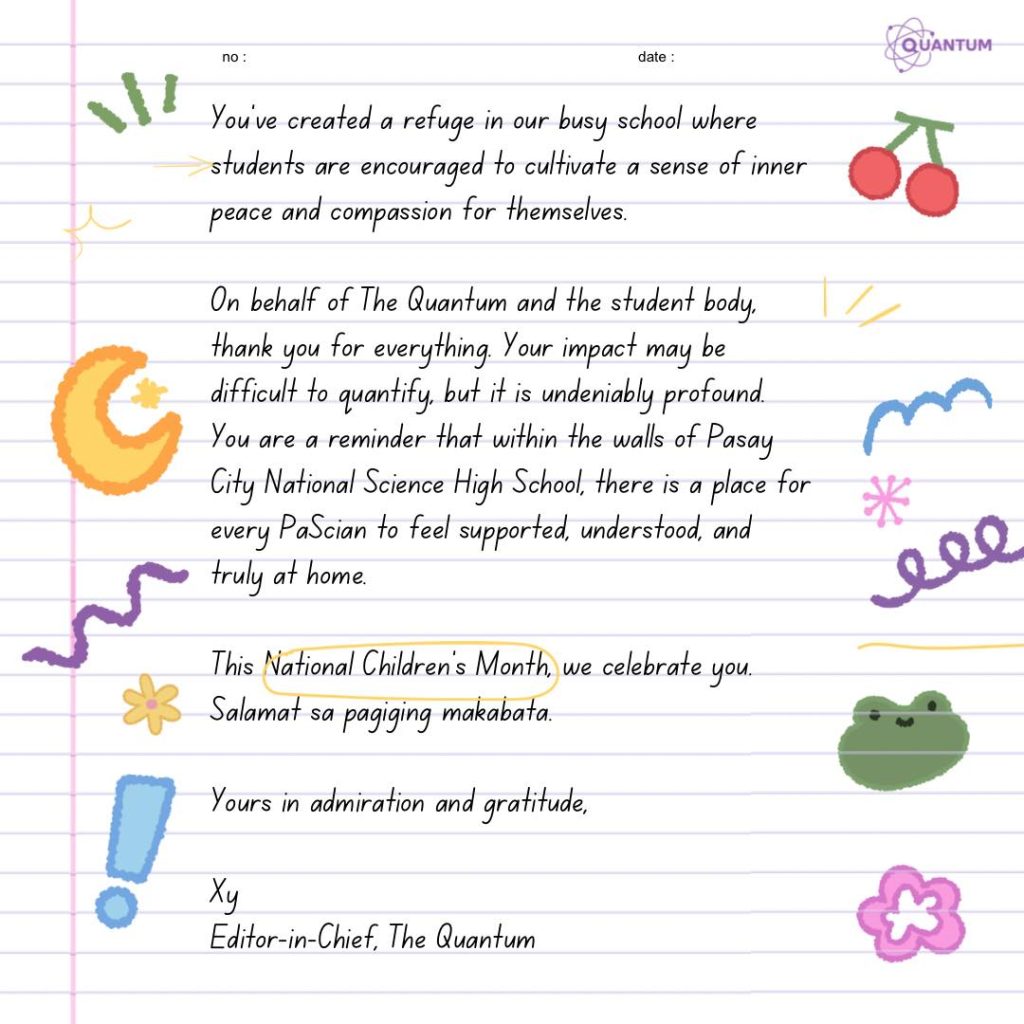 QUANTUM
no :
date :
You've created a refuge in our busy school where
students are encouraged to cultivate a sense of inner
peace and compassion for themselves.
On behalf of The Quantum and the student body,
thank you for everything. Your impact may be
difficult to quantify, but it is undeniably profound.
You are a reminder that within the walls of Pasay
City National Science High School, there is a place for
every PaScian to feel supported, understood, and
truly at home.
This National Children's Month, we celebrate you.
Salamat sa pagiging makabata.
Yours in admiration and gratitude,
Xy
Editor-in-Chief, The Quantum